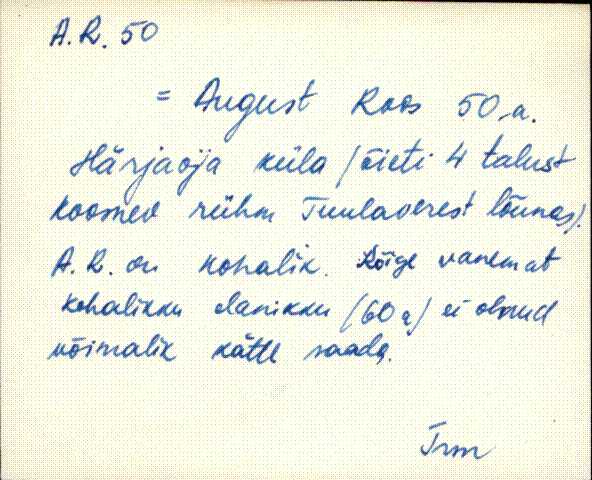 A.R. 50
= August Roos 50 a.
Härjaoja küla (õieti 4 talust
koosnev rühm Tuulaverest lõunas).
A.R. on kohalik. Kõige vanemat
kohalikku elanikku (60 a) ei olnud
võimalik kätte saada.
Trm